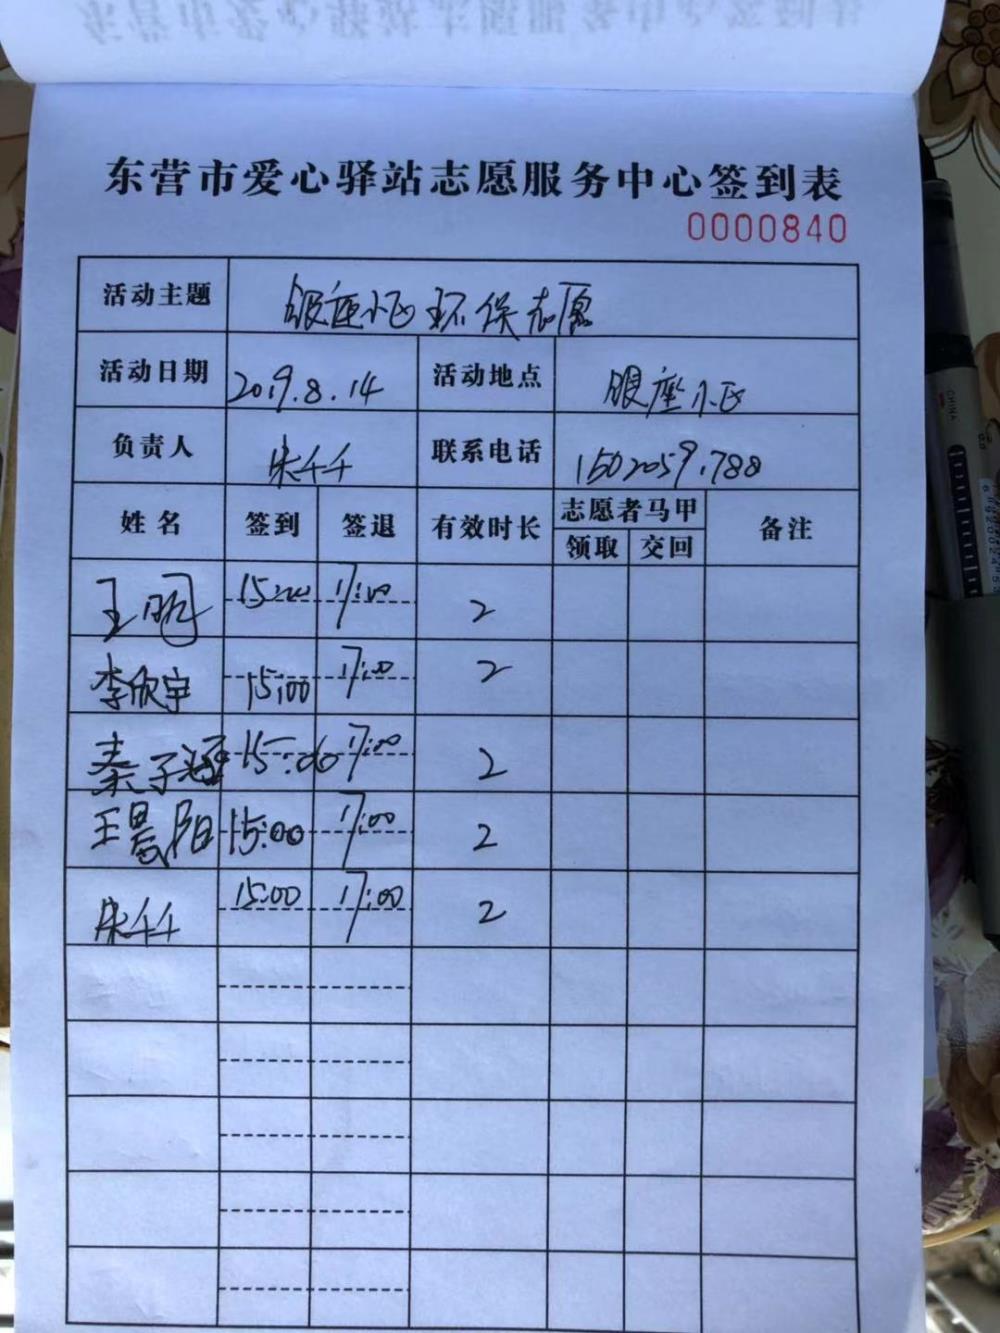 东营市爱心驿站志愿服务中心签到表
0000840
活动主题 银座小区环保志愿
活动日期 2019.8.14 活动地点 银座小区
负责人 朱千千 联系电话
姓名 签到 签退 有效时长 志愿者马甲 备注
领取 交回
王明 15:00 17:00 2
李欣宇 15:00 17:00 2
秦子涵 15:00 17:00 2
王晨阳 15:00 17:00 2
朱千千 15:00 17:00 2
CHINA